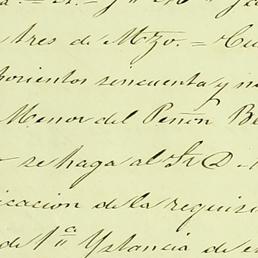 tres de Mzo. = Cu
horientos sincuenta y n
Menor del Peñon Be
se haga al Sr D.
icacion de la requisi
de 1ª Ystancia de e